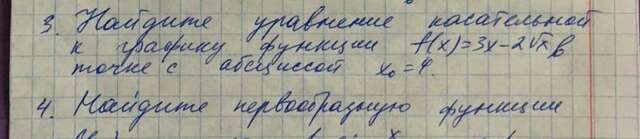 3. Найдите уравнение касательной
к графику функции f(x)=3x-2√x в
точке с абсциссой x₀=4.
4. Найдите первообразную функции